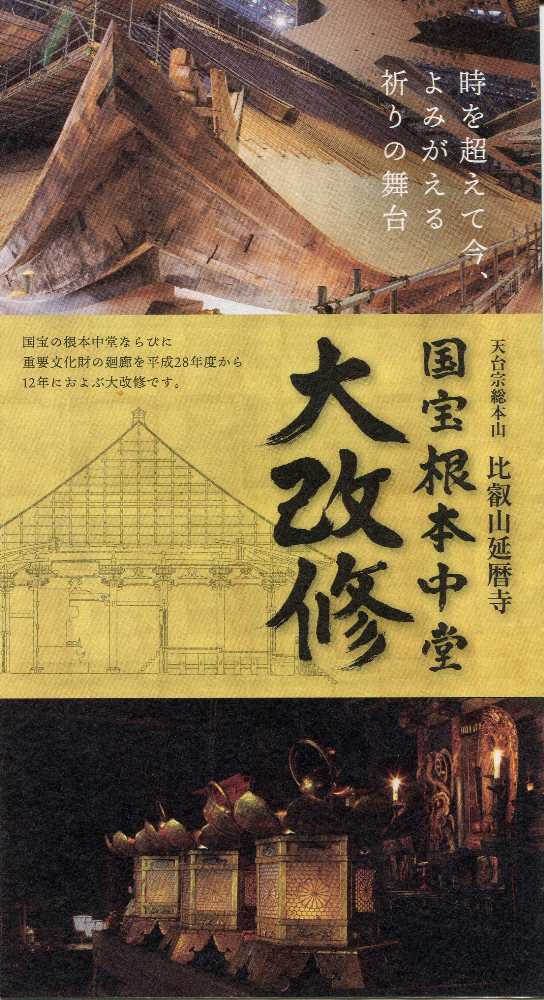 時を超えて今、
よみがえる
祈りの舞台
天台宗総本山 比叡山延暦寺
国宝根本中堂
大改修
国宝の根本中堂ならびに
重要文化財の廻廊を平成28年度から
12年におよぶ大改修です。